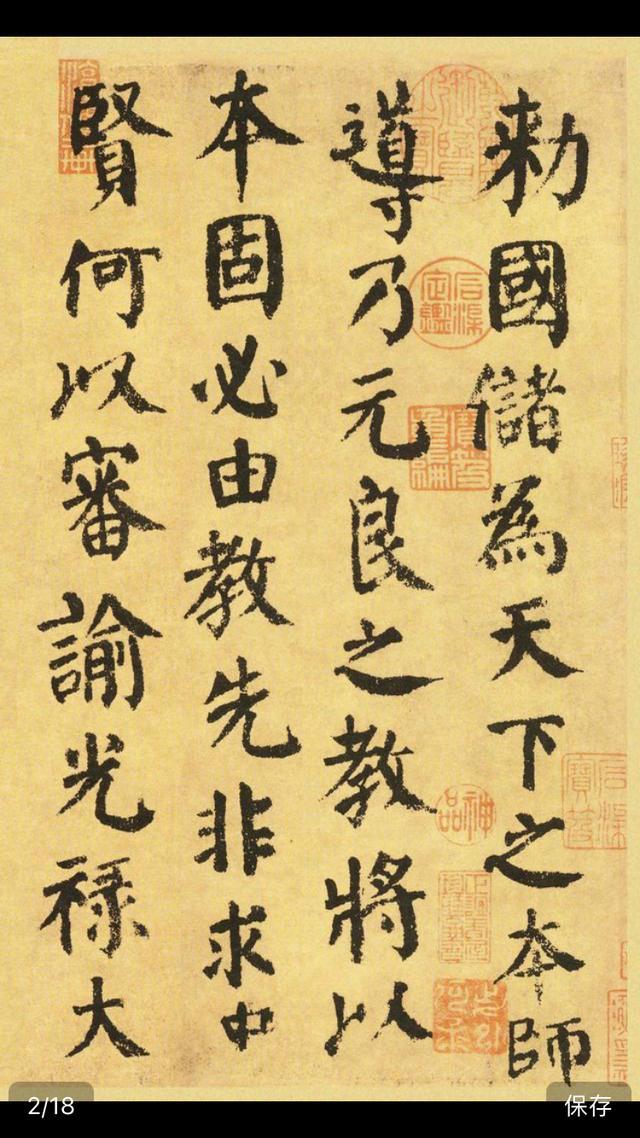 勅國儲為天下之本師
導乃元良之教將以
本固必由教先非求中
賢何以審諭光祿大
神品
2/18
保存